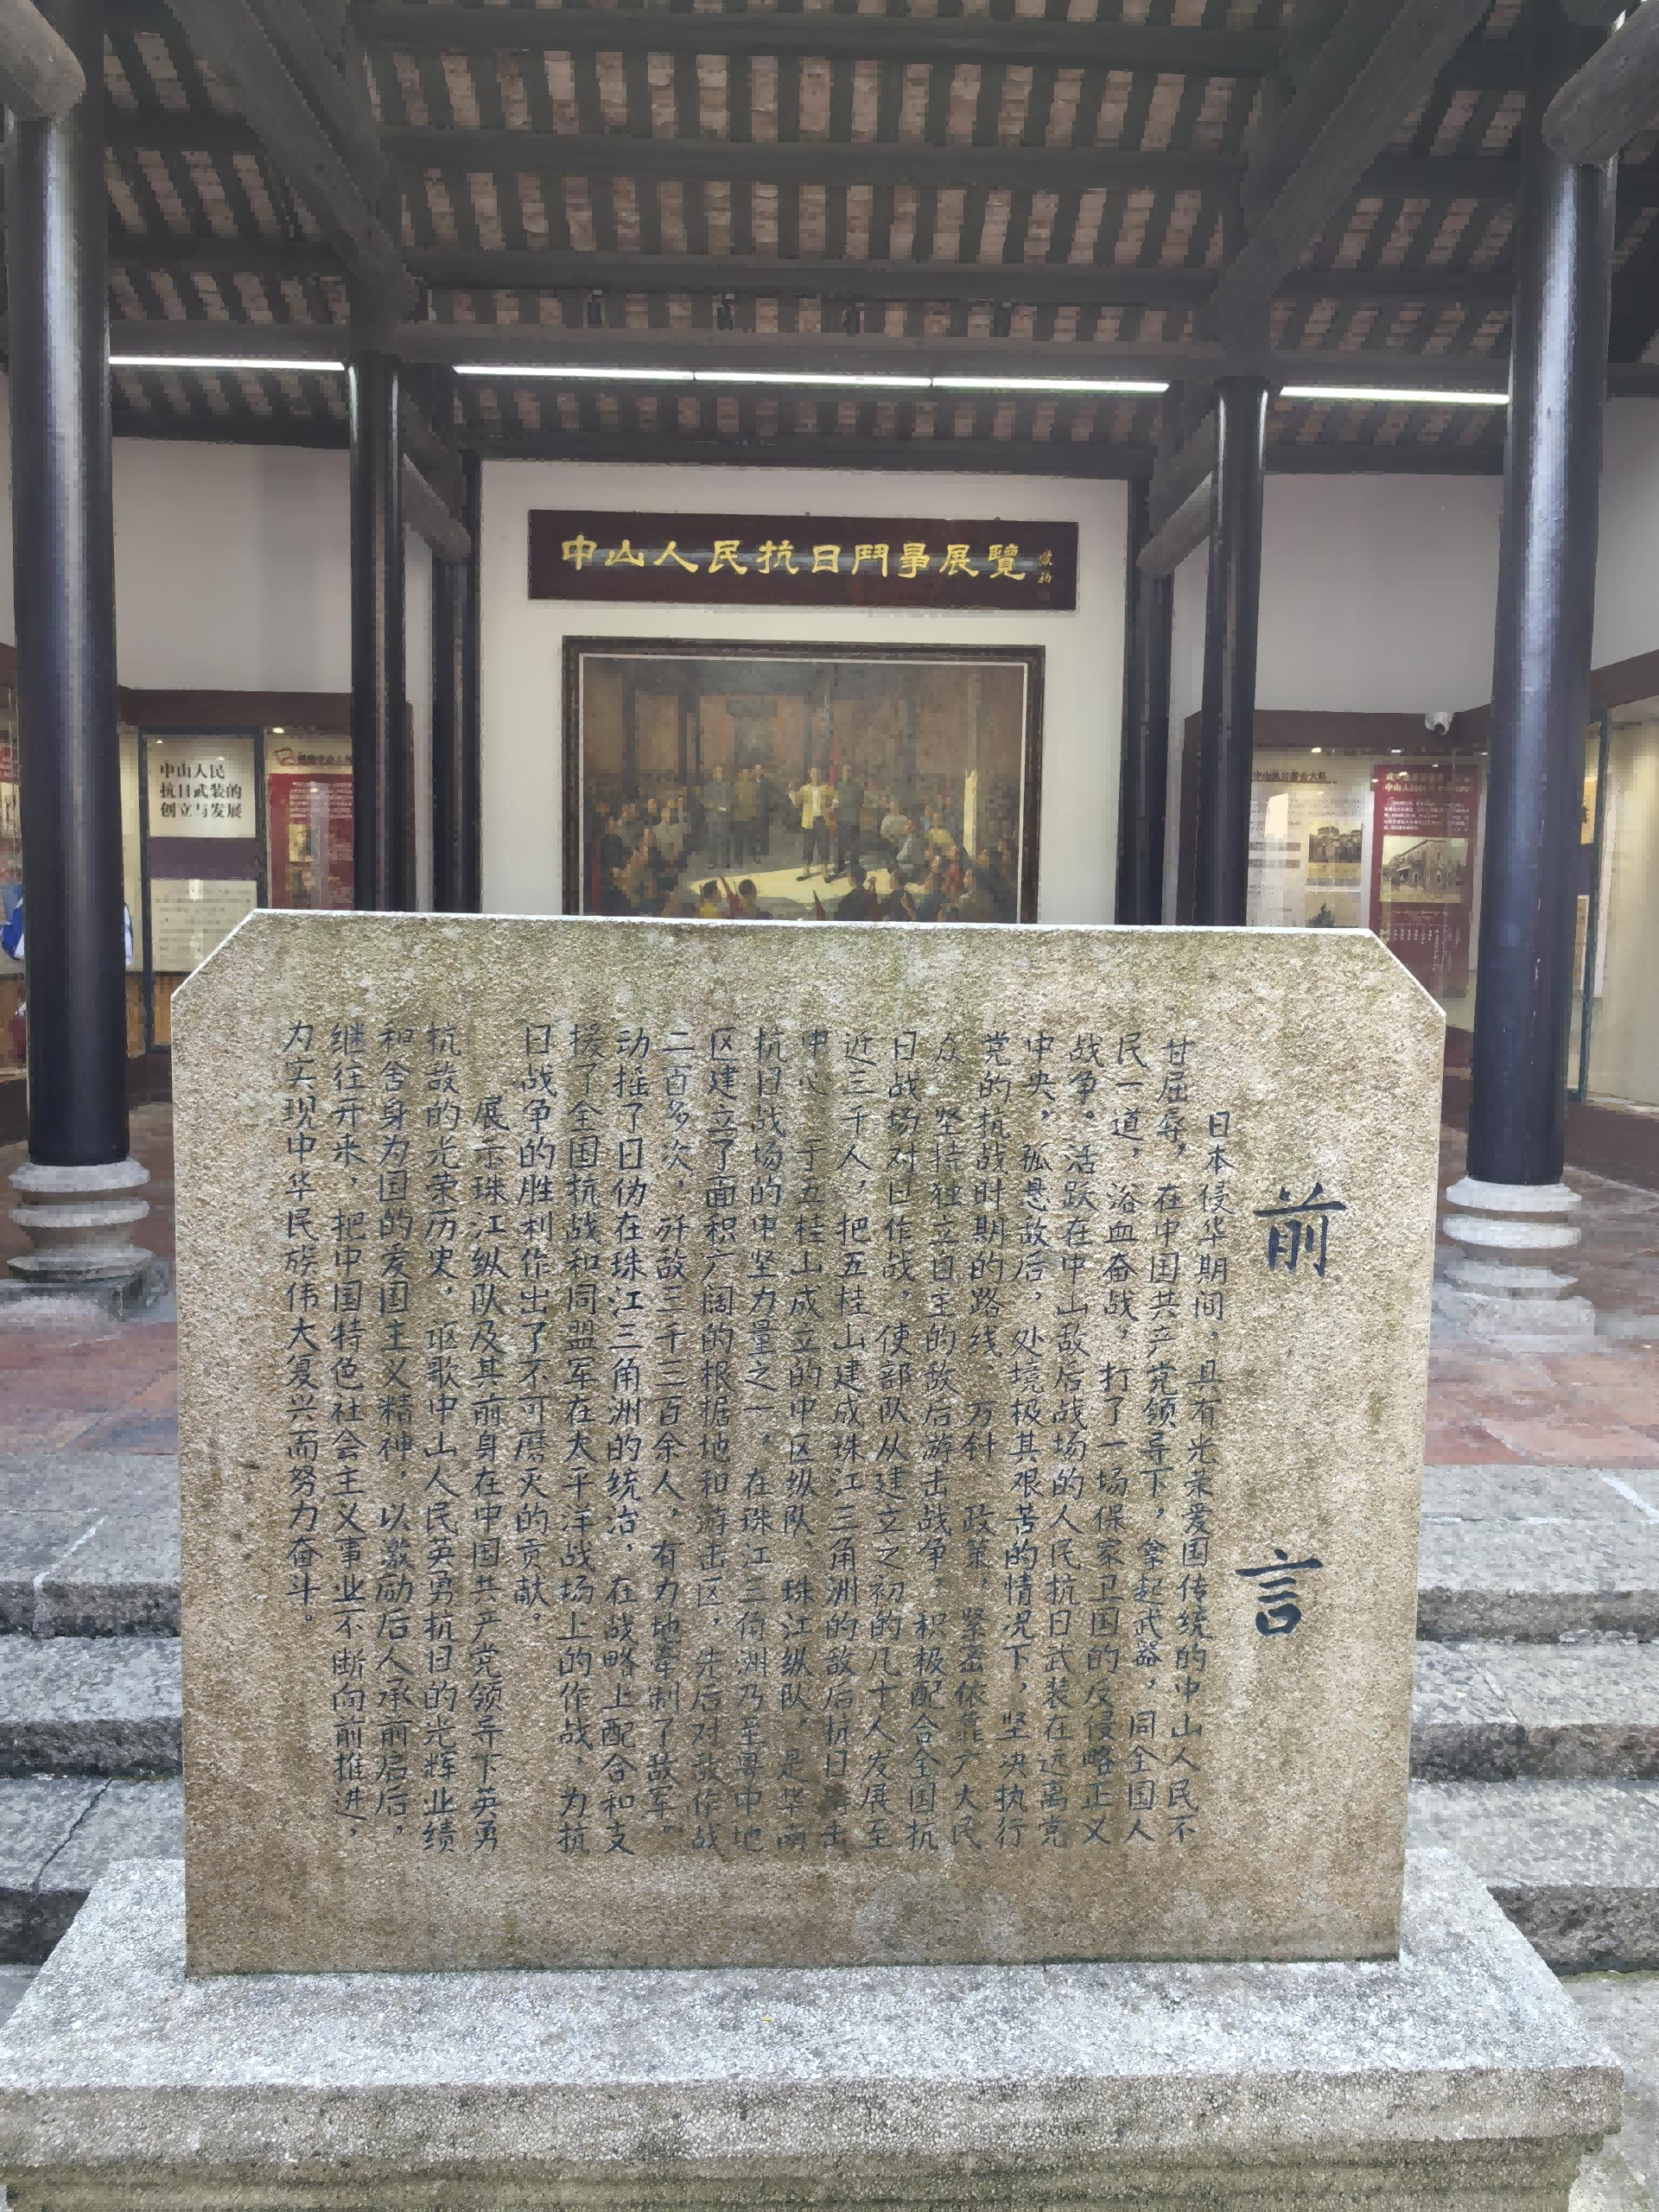 中山人民抗日鬥爭展覽
中山人民
抗日武装的
创立与发展
前言
日本侵华期间，具有光荣爱国传统的中山人民不
甘屈辱，在中国共产党领导下，拿起武器，同全国人
民一道，浴血奋战，打了一场保家卫国的反侵略正义
战争。活跃在中山敌后战场的人民抗日武装在远离党
中央，孤悬敌后，处境极其艰苦的情况下，坚决执行
党的抗战时期的路线、方针、政策，紧密依靠广大民
众，坚持独立自主的敌后游击战争，积极配合全国抗
日战场对日作战，使部队从建立之初的几十人发展至
近三千人，把五桂山建成珠江三角洲的敌后抗日游击
中心。于五桂山成立的中区纵队、珠江纵队，是华南
抗日战场的中坚力量之一。在珠江三角洲乃至粤中地
区建立了面积广阔的根据地和游击区，先后对敌作战
二百多次，歼敌三千三百余人，有力地牵制了敌军。
动摇了日伪在珠江三角洲的统治，在战略上配合和支
援了全国抗战和同盟军在太平洋战场上的作战，为抗
日战争的胜利作出了不可磨灭的贡献。
展示珠江纵队及其前身在中国共产党领导下英勇
抗敌的光荣历史，讴歌中山人民英勇抗日的光辉业绩
和舍身为国的爱国主义精神，以激励后人承前启后，
继往开来，把中国特色社会主义事业不断向前推进，
为实现中华民族伟大复兴而努力奋斗。